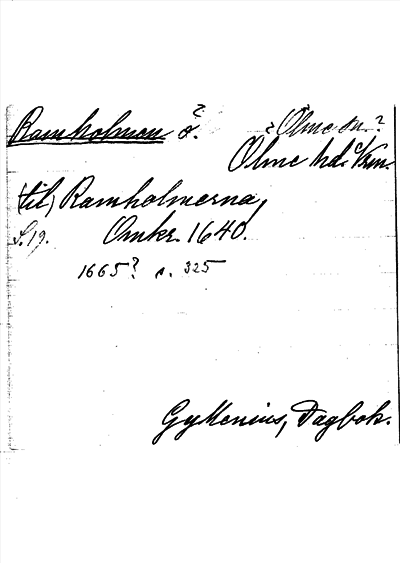 Ramholmen ö. ? ? Ölme sn. ?
Ölme hd. Vrm.
(till) Ramholmerna,
S. 19. Omkr. 1640.
1665? s. 325
Gyllenius, Dagbok.